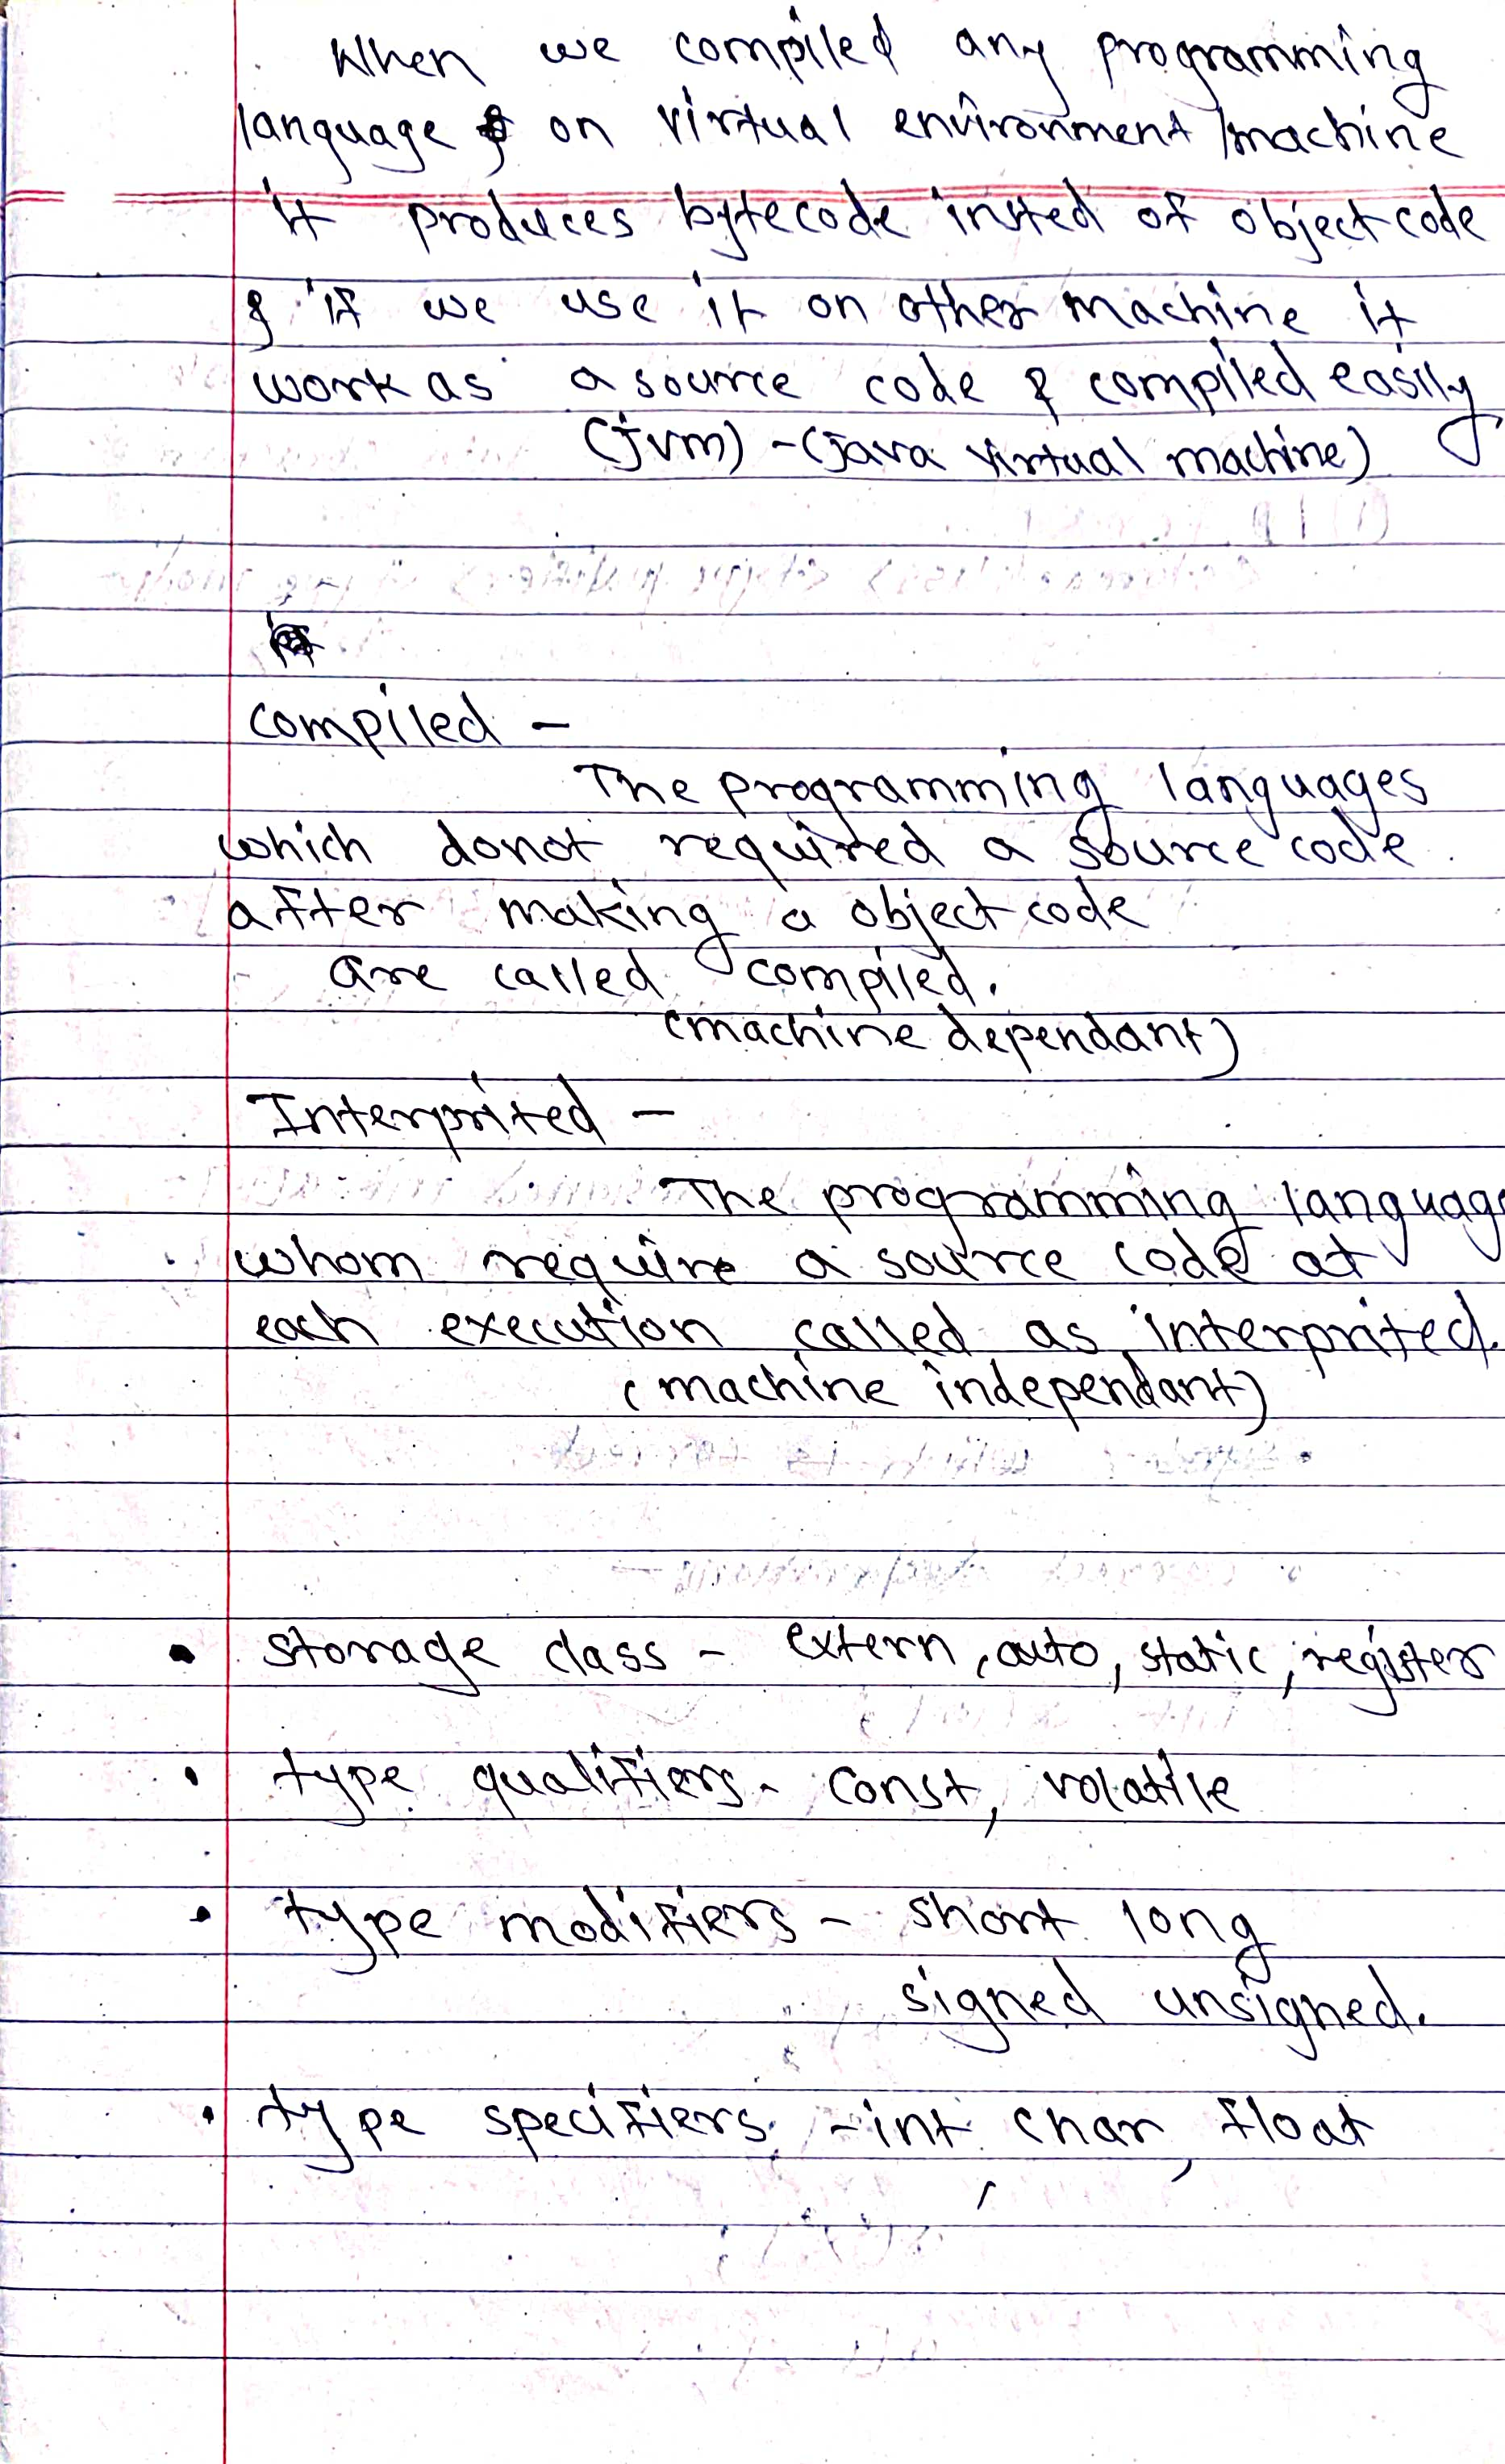 When we compiled any programming
language on virtual environment/machine
it produces bytecode insted of object code
& if we use it on other machine it
work as a source code & compiled easily
(jvm) - (java virtual machine)
compiled -
The programming languages
which donot required a source code
after making a object code
are called compiled.
(machine dependant)
Interprited -
The programming language
whom require a source code at
each execution called as interprited.
(machine independant)
• storage class - extern, auto, static, register
• type qualifiers - const, volatile
• type modifiers - short long
signed unsigned.
• type specifiers - int, char, float